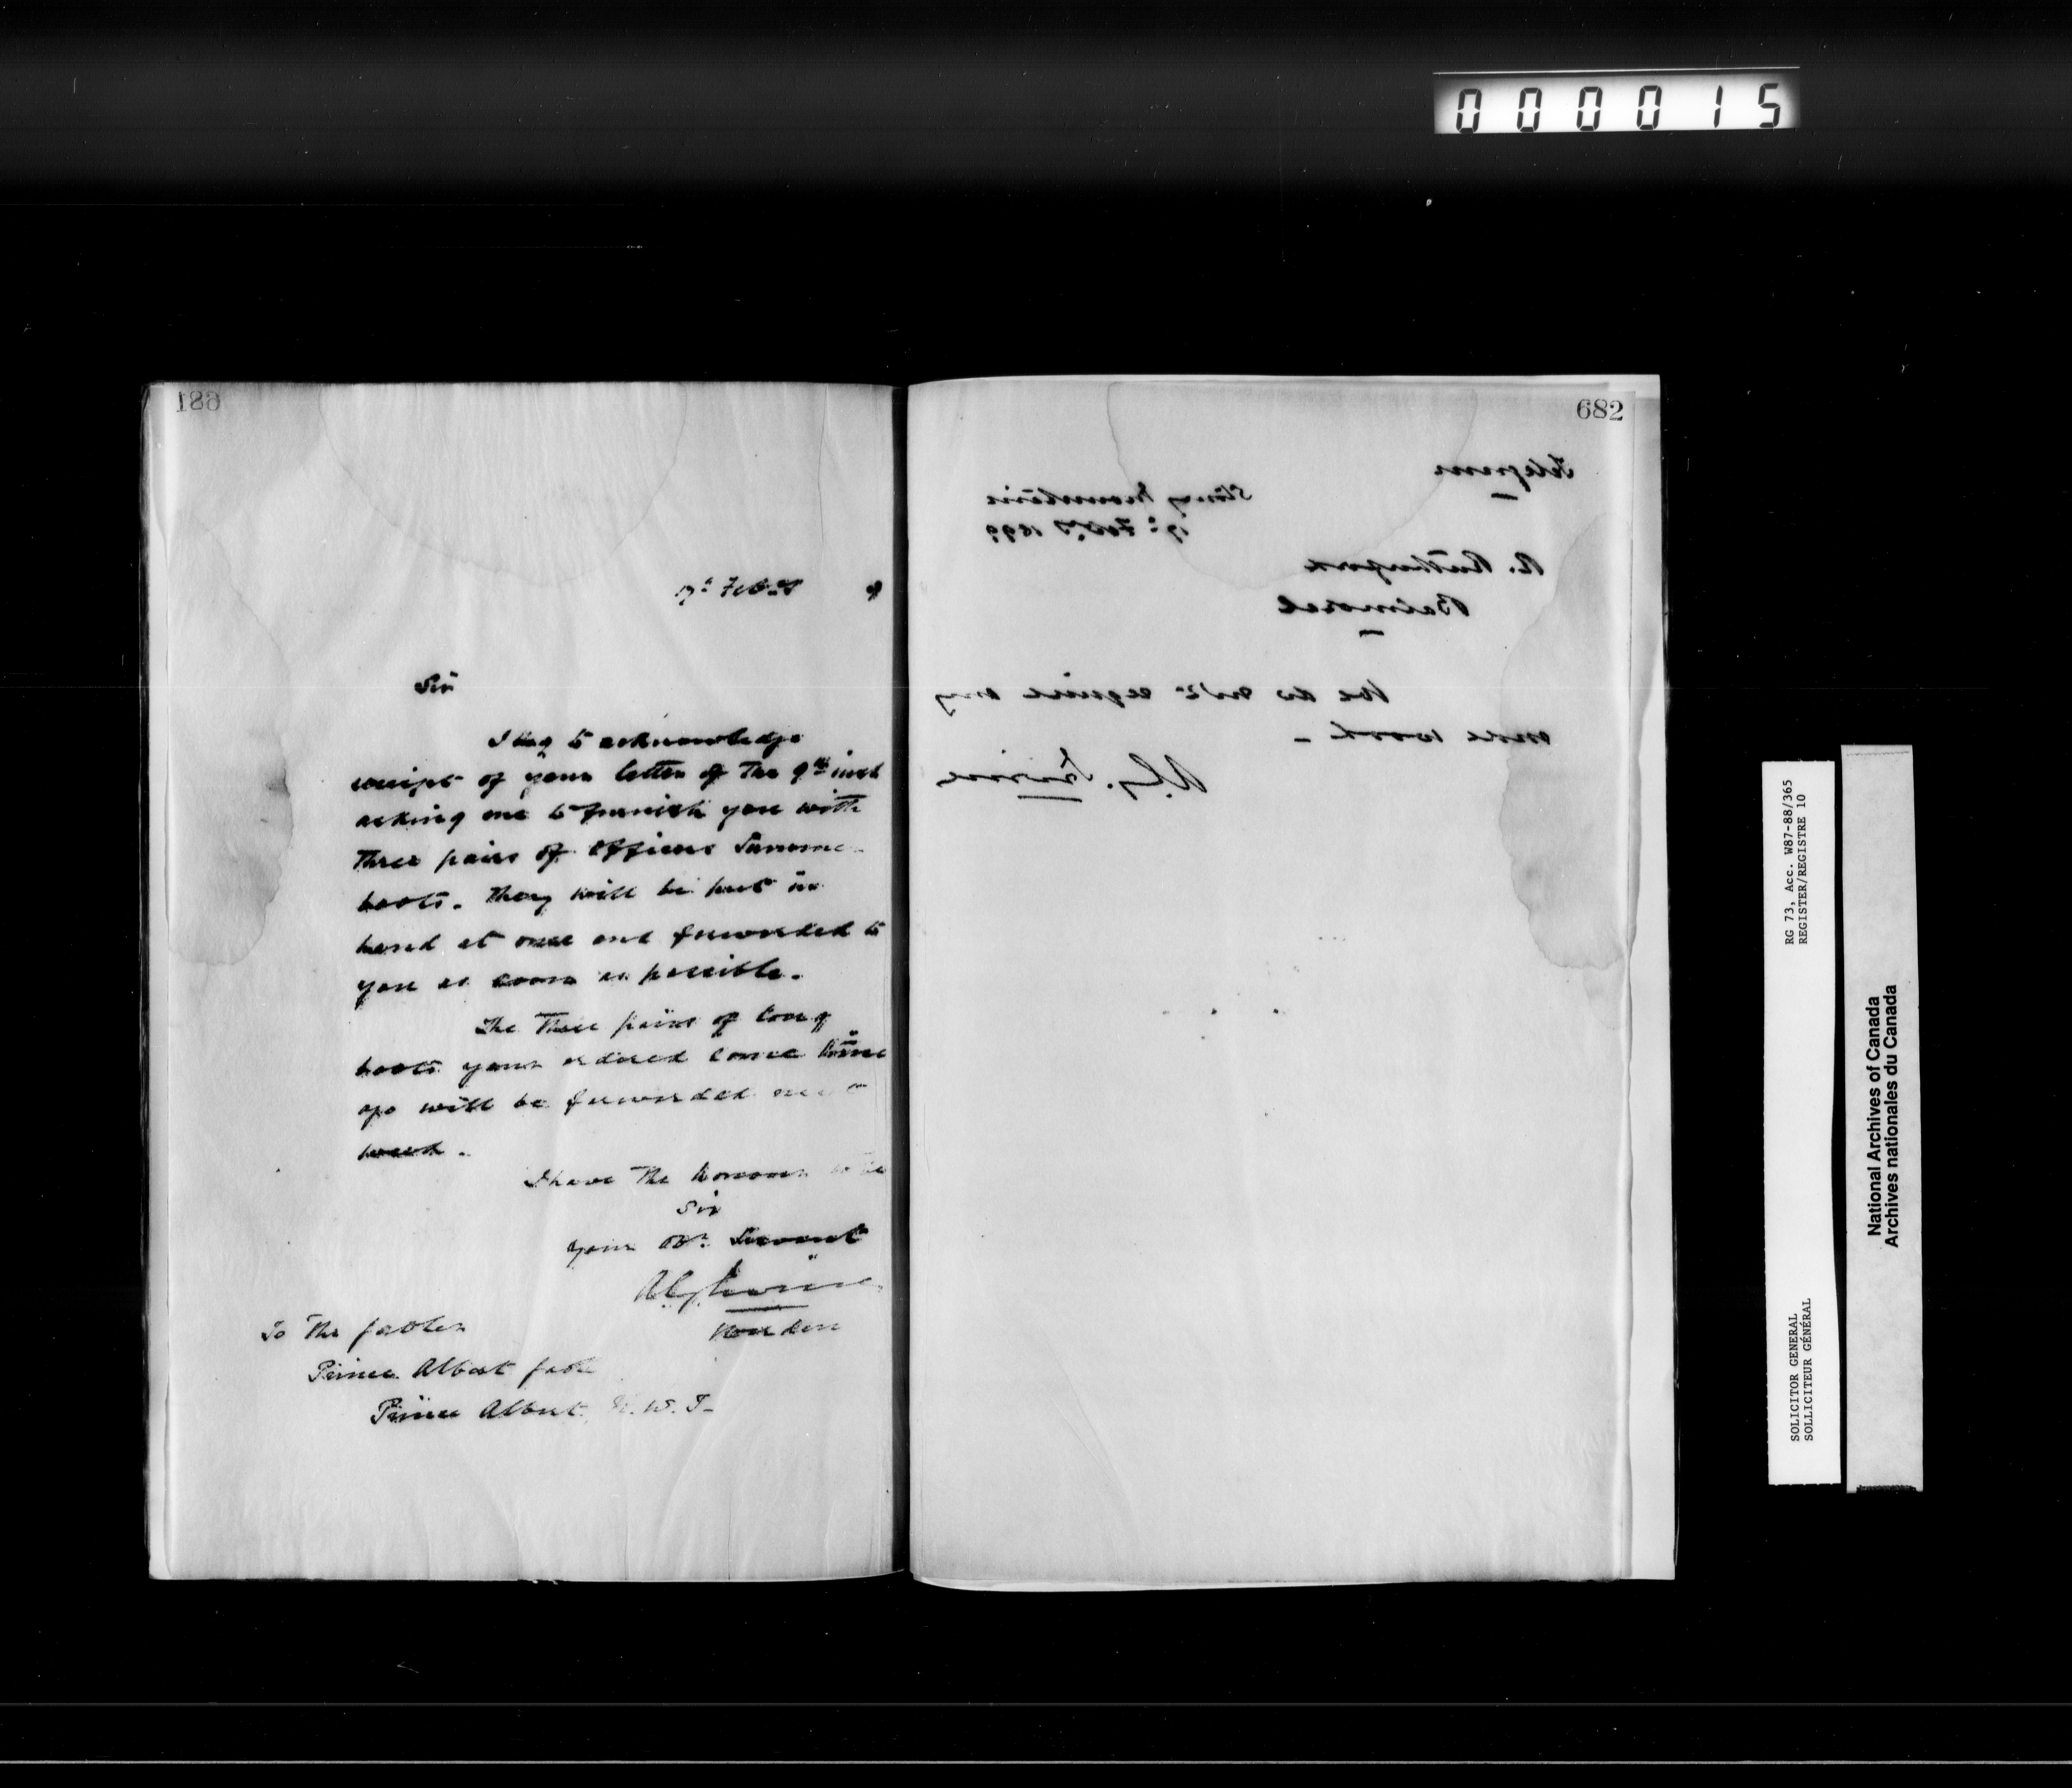 000015
681
17th Feby 9
Sir
I beg to acknowledge
receipt of your letter of the 9th inst
asking me to furnish you with
three pairs of officers Summer
boots. They will be put in
hand at once and forwarded to
you as soon as possible.
The three pairs of long
boots you ordered some time
ago will be forwarded next
week.
I have the honour to be
Sir
Your Obt. Servant
A.G. Irvine
Warden
To The Jailer
Prince Albert Jail
Prince Albert, N.W.T.
682
Telegram
Stony Mountain
17th Feby 1899
R. Rutherford
Balmoral
We do not require any
more wood -
A.G. Irvine
RG 73, Acc. W87-88/365
REGISTER/REGISTRE 10
SOLICITOR GENERAL
SOLLICITEUR GÉNÉRAL
National Archives of Canada
Archives nationales du Canada